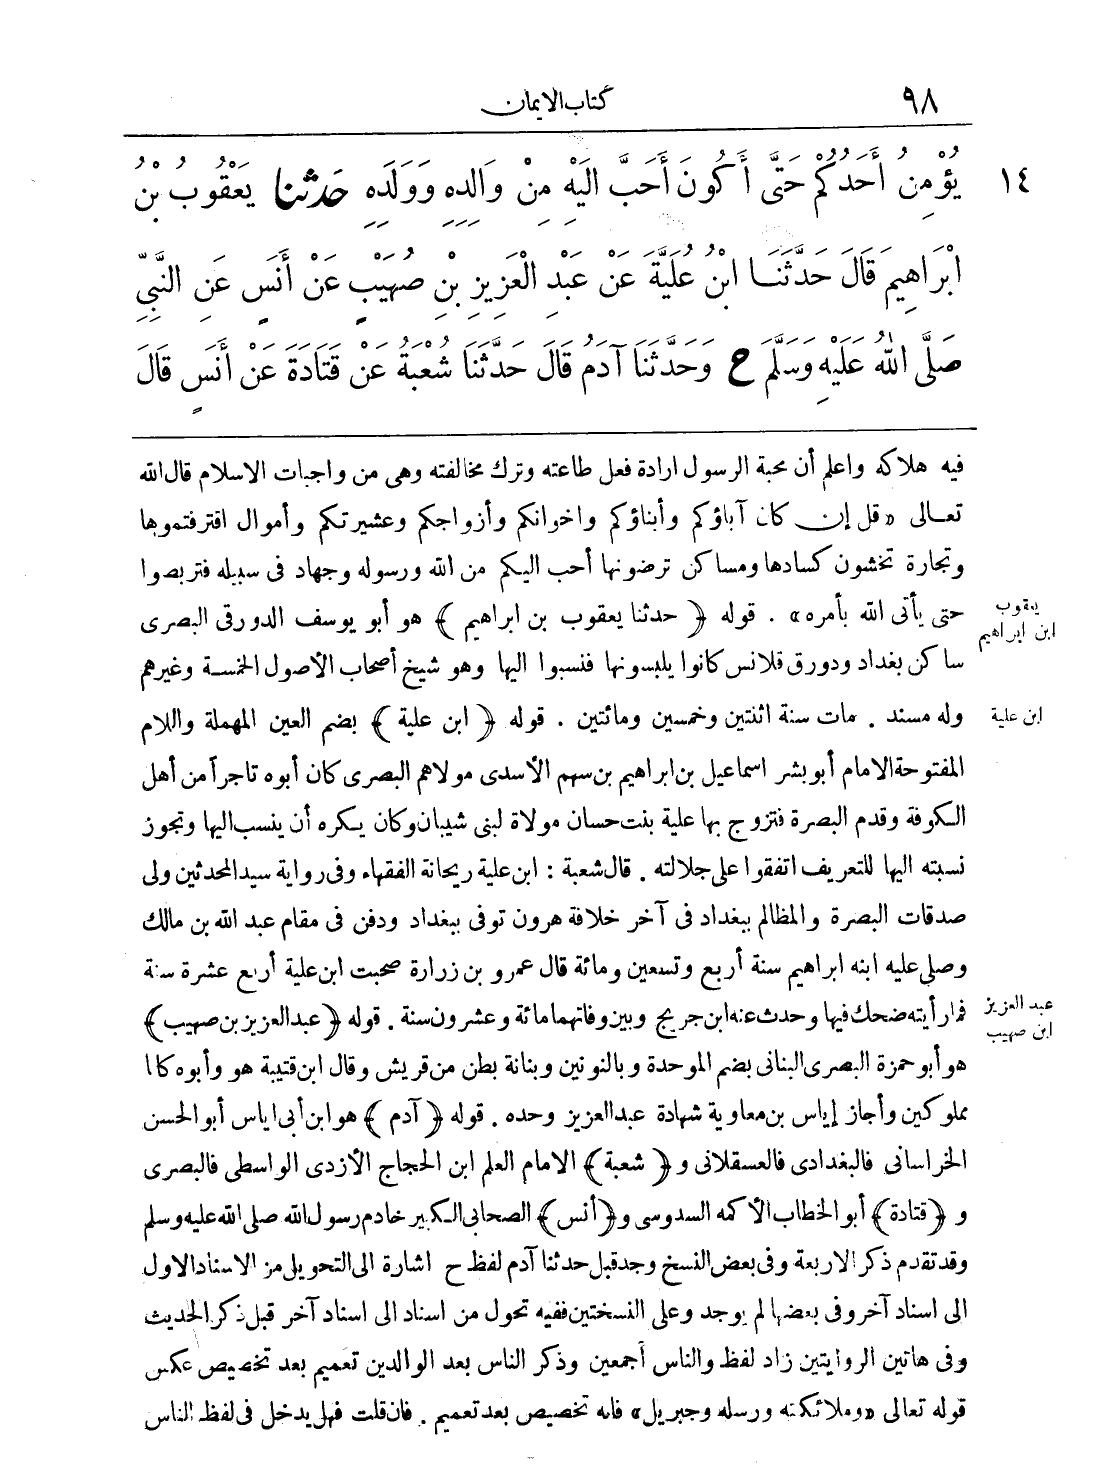 ٩٨ كتاب الايمان
١٤ يُؤْمِنُ أَحَدُكُمْ حَتَّى أَكُونَ أَحَبَّ اِلَيْهِ مِنْ وَالِدِهِ وَوَلَدِهِ حَدَّثَنَا يَعْقُوبُ بْنُ
اِبْرَاهِيمَ قَالَ حَدَّثَنَا ابْنُ عُلَيَّةَ عَنْ عَبْدِ الْعَزِيزِ بْنِ صُهَيْبٍ عَنْ أَنَسٍ عَنِ النَّبِيِّ
صَلَّى اللهُ عَلَيْهِ وَسَلَّمَ ح وَحَدَّثَنَا آدَمُ قَالَ حَدَّثَنَا شُعْبَةُ عَنْ قَتَادَةَ عَنْ أَنَسٍ قَالَ
فيه هلاكه واعلم أن محبة الرسول ارادة فعل طاعته وترك مخالفته وهى من واجبات الاسلام قال الله
تعالى «قل إن كان آباؤكم وأبناؤكم واخوانكم وأزواجكم وعشيرتكم وأموال اقترفتموها
وتجارة تخشون كسادها ومساكن ترضونها أحب اليكم من الله ورسوله وجهاد فى سبيله فتربصوا
حتى يأتى الله بأمره» . قوله ﴿حدثنا يعقوب بن ابراهيم﴾ هو أبو يوسف الدورقى البصرى
يعقوب
ابن ابراهيم
ساكن بغداد ودورق قلانس كانوا يلبسونها فنسبوا اليها وهو شيخ أصحاب الأصول الخمسة وغيرهم
وله مسند . مات سنة اثنتين وخمسين ومائتين . قوله ﴿ابن علية﴾ بضم العين المهملة واللام
ابن علية
المفتوحة الامام أبو بشر اسماعيل بن ابراهيم بن سهم الأسدى مولاهم البصرى كان أبوه تاجراً من أهل
الكوفة وقدم البصرة فتزوج بها علية بنت حسان مولاة لبنى شيبان وكان يكره أن ينسب اليها وتجوز
نسبته اليها للتعريف اتفقوا على جلالته . قال شعبة : ابن علية ريحانة الفقهاء وفى رواية سيد المحدثين ولى
صدقات البصرة والمظالم ببغداد فى آخر خلافة هرون توفى ببغداد ودفن فى مقام عبد الله بن مالك
وصلى عليه ابنه ابراهيم سنة أربع وتسعين ومائة قال عمرو بن زرارة صحبت ابن علية أربع عشرة سنة
فما رأيته ضحك فيها وحدث عنه ابن جريج وبين وفاتهما مائة وعشرون سنة . قوله ﴿عبد العزيز بن صهيب﴾
عبد العزيز
ابن صهيب
هو أبو حمزة البصرى البنانى بضم الموحدة وبالنونين وبنانة بطن من قريش وقال ابن قتيبة هو وأبوه كانا
مملوكين وأجاز إياس بن معاوية شهادة عبد العزيز وحده . قوله ﴿آدم﴾ هو ابن أبى اياس أبو الحسن
الخراسانى فالبغدادى فالعسقلانى و﴿شعبة﴾ الامام العلم ابن الحجاج الأزدى الواسطى فالبصرى
و﴿قتادة﴾ أبو الخطاب الأكمه السدوسى و﴿أنس﴾ الصحابى الكبير خادم رسول الله صلى الله عليه وسلم
وقد تقدم ذكر الاربعة وفى بعض النسخ وجد قبل حدثنا آدم لفظ ح اشارة الى التحويل من الاسناد الاول
الى اسناد آخر وفى بعضها لم يوجد وعلى النسختين ففيه تحول من اسناد الى اسناد آخر قبل ذكر الحديث
وفى هاتين الروايتين زاد لفظ والناس أجمعين وذكر الناس بعد الوالدين تعميم بعد تخصيص عكس
قوله تعالى «وملائكته ورسله وجبريل» فانه تخصيص بعد تعميم . فان قلت فهل يدخل فى لفظ الناس